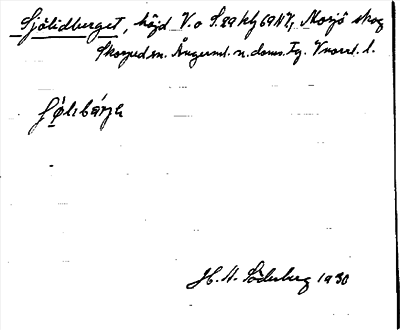 Sjölidberget, höjd V. o S. 29 kf 69 N 7, Norsjö skog
Skorped sn. Ångerml. n. doms. fg. Vnorrl. l.
H. A. Söderberg 1930